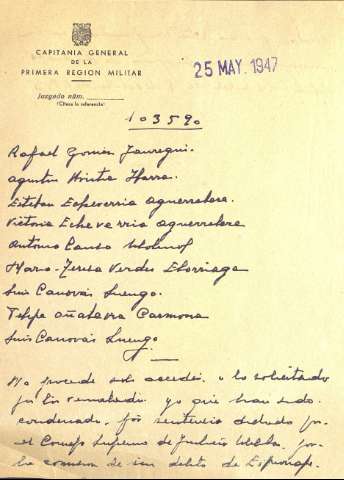 CAPITANIA GENERAL
DE LA
PRIMERA REGION MILITAR
25 MAY. 1947
Juzgado núm.
(Citese la referencia)
103590
Rafael Gomez Jauregui.
Agustin Ibarra.
Esteban Echeverria Aguerrelere.
Victoria Echeverria Aguerrelere
Antonio
Maria-Teresa Verdes Elorriaga
Luis Canovás Luengo.
Felipe Añalavia Carmona
Luis Canovás Luengo
No procede sea acceder a lo solicitado
por los ya que han sido
condenado, por sentencia dictada por
el Consejo Supremo de Justicia Militar, por
la comision de un delito de Espionaje.